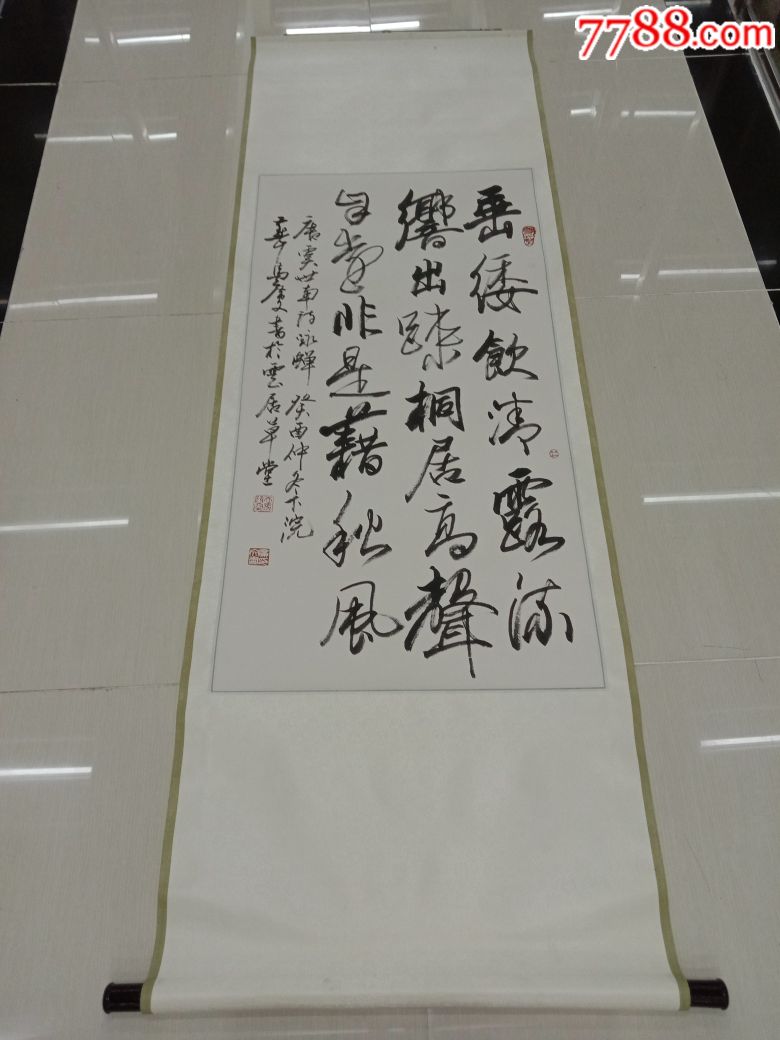 7788.com
垂緌飲清露流
響出踈桐居高聲
自遠非是藉秋風
唐虞世南詩詠蟬 癸酉仲冬下浣
書於雲居草堂